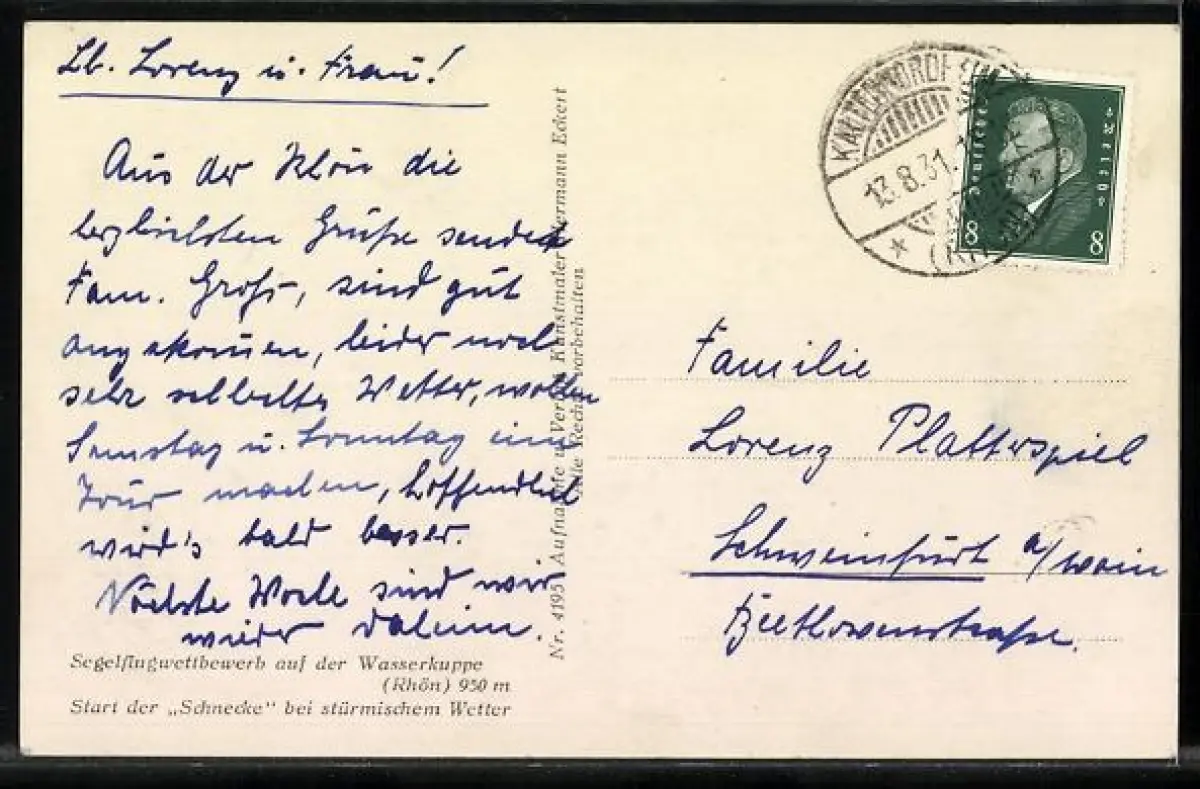 Lb. Lorenz u. Frau!
Aus der Rhön die
herzlichsten Grüße sendet
Fam. Groß, sind gut
angekommen, leider noch
sehr schlechtes Wetter, wollen
Samstag u. Sonntag eine
Tour machen, hoffendlich
wird's bald besser.
Nächste Woche sind wir
wieder daheim.
Segelflugwettbewerb auf der Wasserkuppe
(Rhön) 950 m
Start der „Schnecke" bei stürmischem Wetter
Nr. 4195 Aufnahme u. Verlag Kunstmaler Hermann Eckert
Alle Rechte vorbehalten
13.8.31.
(RHÖN)
Deutsches Reich
8 8
Familie
Lorenz Platterspiel
Schweinfurt a/Main
Beethovenstraße.